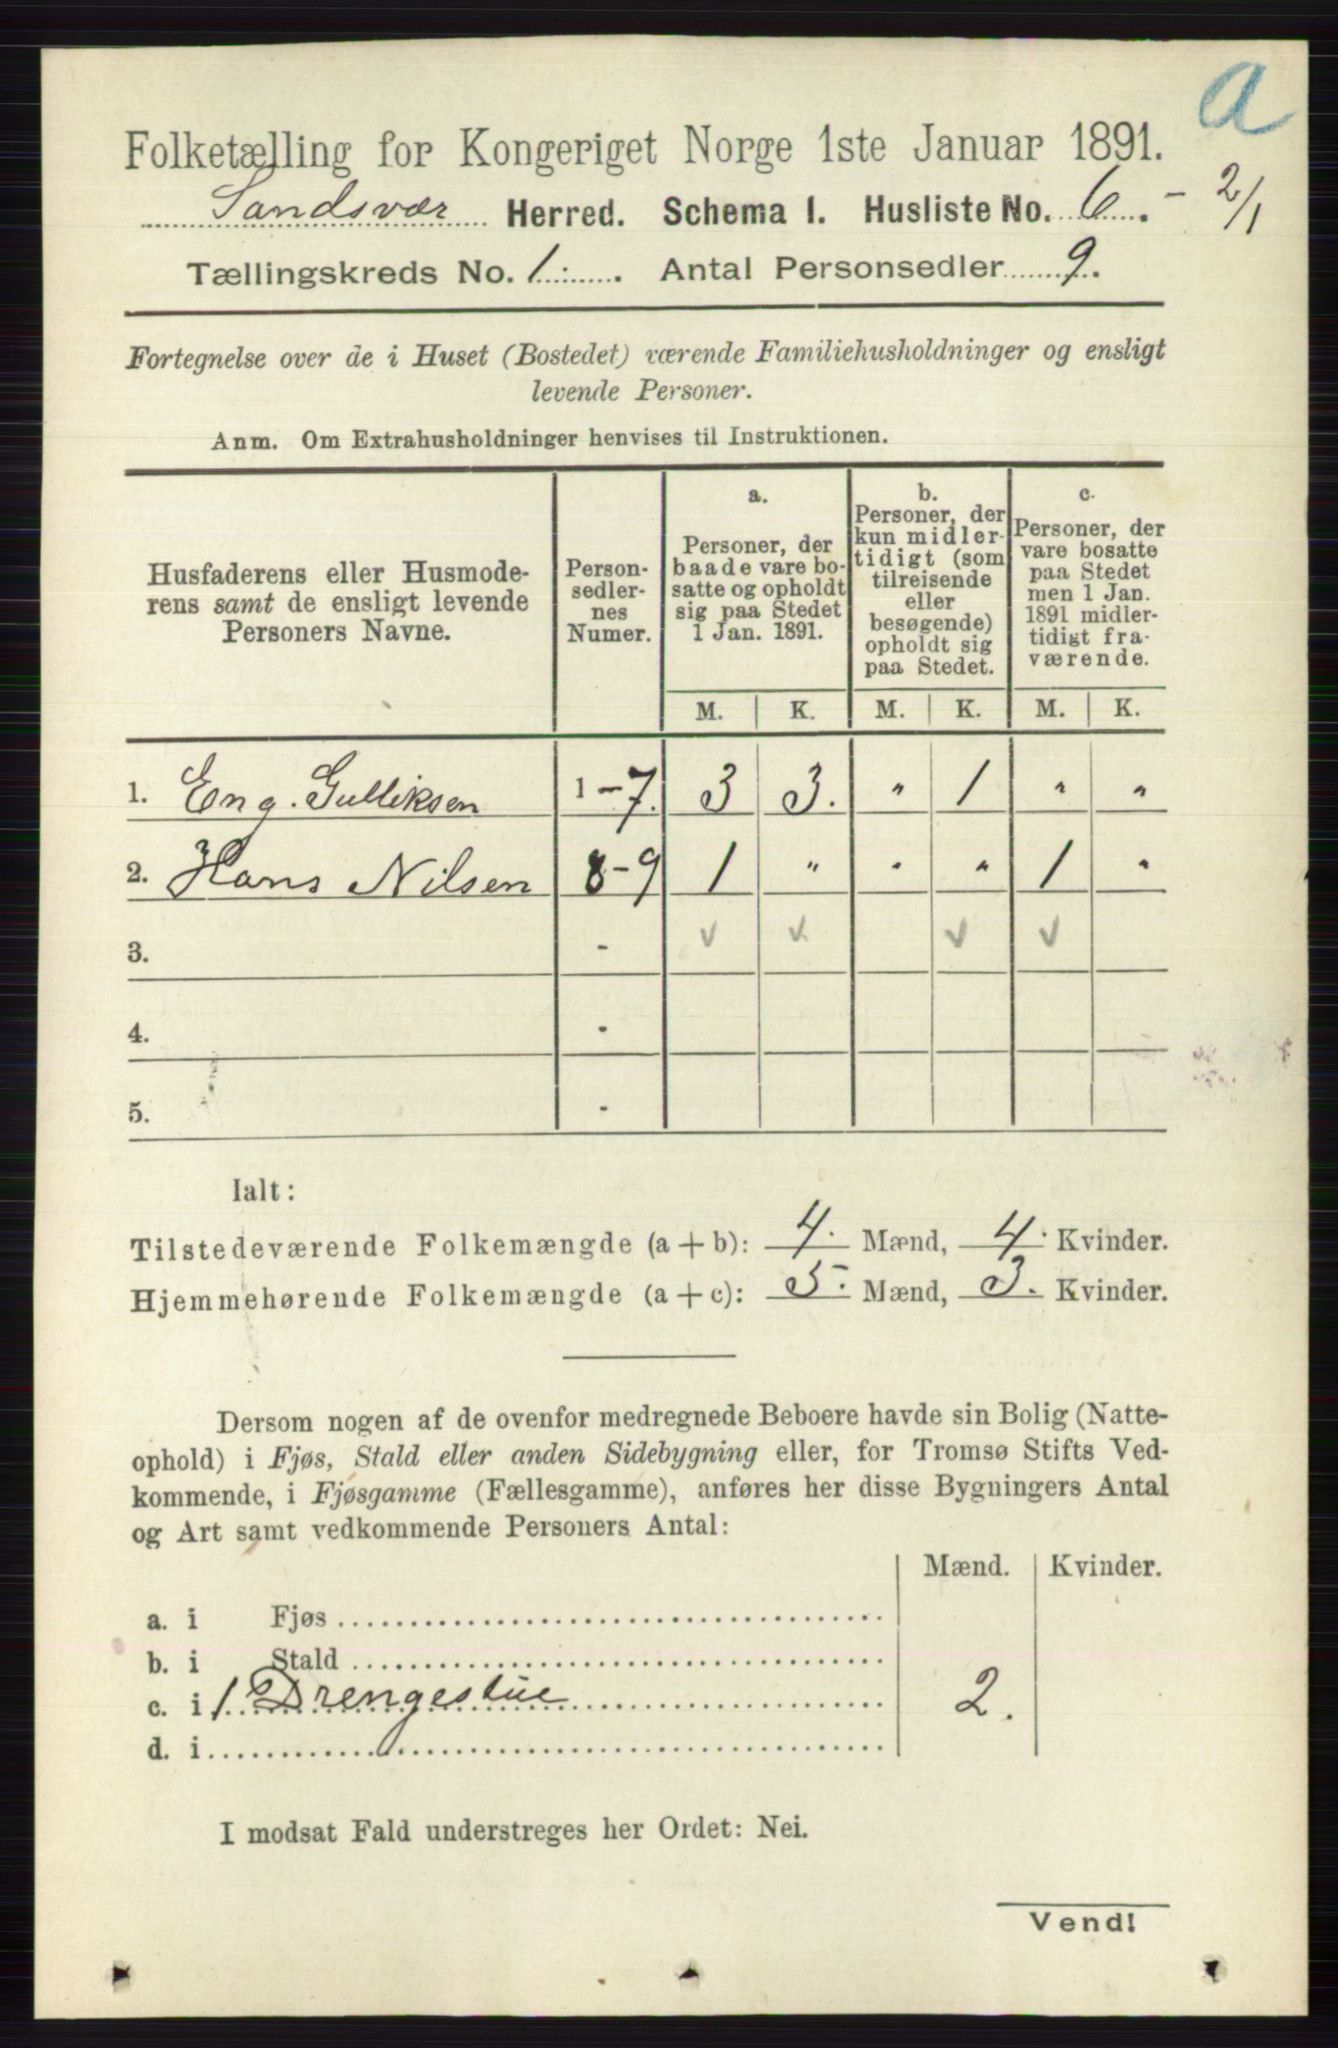 a
Folketælling for Kongeriget Norge 1ste Januar 1891.
Sandsvær Herred. Schema I. Husliste No. 6. - 2/1
Tællingskreds No. 1. Antal Personsedler 9.
Fortegnelse over de i Huset (Bostedet) værende Familiehusholdninger og ensligt
levende Personer.
Anm. Om Extrahusholdninger henvises til Instruktionen.
Husfaderens eller Husmode-
rens samt de ensligt levende
Personers Navne.
Person-
sedler-
nes
Numer.
a.
Personer, der
baade vare bo-
satte og opholdt
sig paa Stedet
1 Jan. 1891.
b.
Personer, der
kun midler-
tidigt (som
tilreisende
eller
besøgende)
opholdt sig
paa Stedet.
c.
Personer, der
vare bosatte
paa Stedet
men 1 Jan.
1891 midler-
tidigt fra-
værende.
M. K. M. K. M. K.
1. Eng. Gulliksen 1-7. 3 3. " 1 " "
2. Hans Nilsen 8-9 1 " " " 1 "
3. - ✓ ✓ ✓ ✓
4. -
5. -
Ialt:
Tilstedeværende Folkemængde (a + b): 4. Mænd, 4. Kvinder.
Hjemmehørende Folkemængde (a + c): 5. Mænd, 3. Kvinder.
Dersom nogen af de ovenfor medregnede Beboere havde sin Bolig (Natte-
ophold) i Fjøs, Stald eller anden Sidebygning eller, for Tromsø Stifts Ved-
kommende, i Fjøsgamme (Fællesgamme), anføres her disse Bygningers Antal
og Art samt vedkommende Personers Antal:
Mænd. Kvinder.
a. i Fjøs
b. i Stald
c. i 1 Drengestue 2.
d. i
I modsat Fald understreges her Ordet: Nei.
Vend!